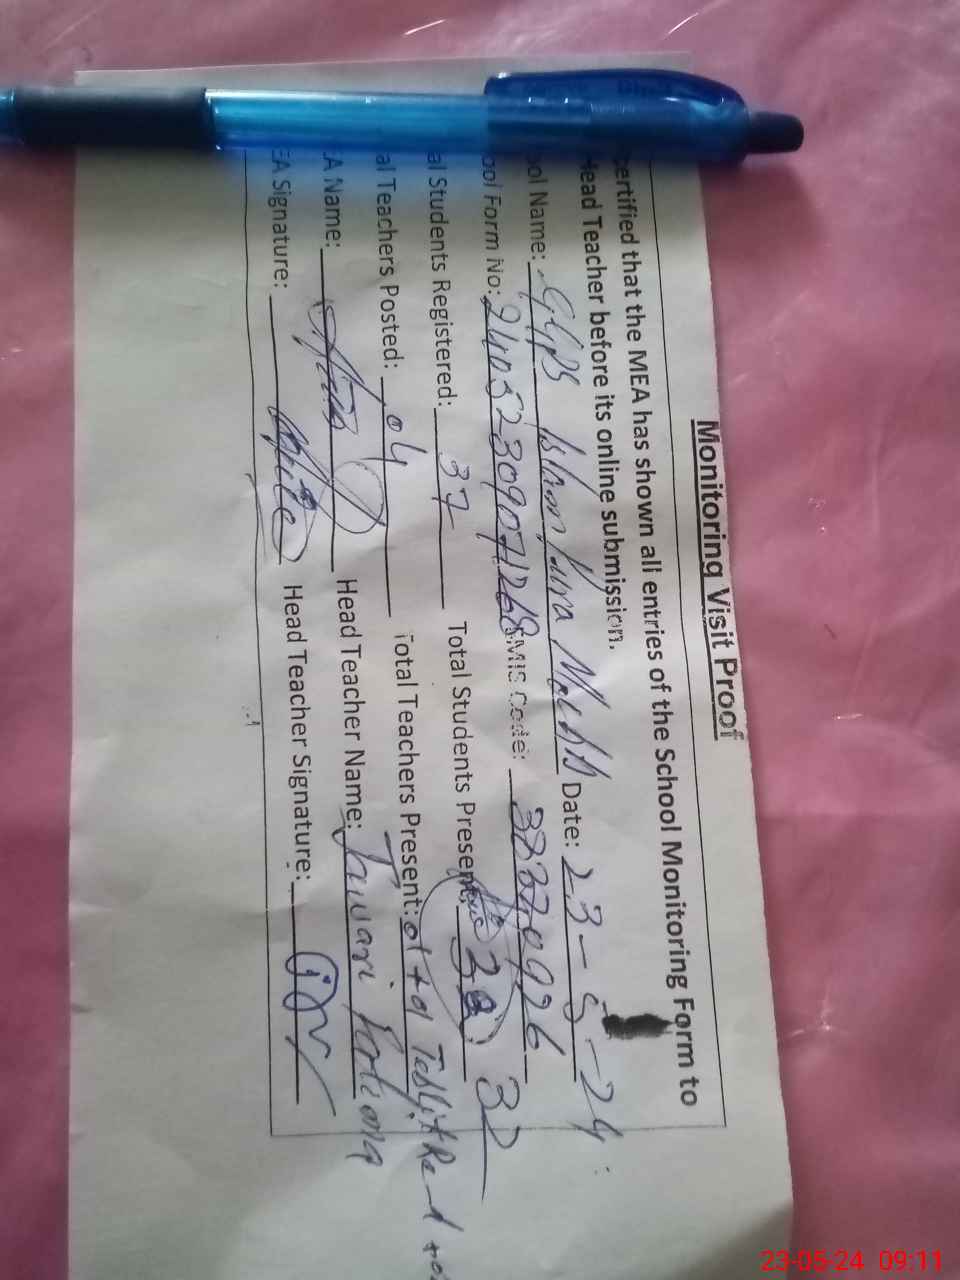 Monitoring Visit Proof
certified that the MEA has shown all entries of the School Monitoring Form to
Head Teacher before its online submission.
ol Name: GGPS Islam Pura Date: 23-5-24
ool Form No: 24052309071268 MIS Code: 38370926
al Students Registered: 37 Total Students Present: 32
al Teachers Posted: 04 Total Teachers Present: 01+01
A Name: Head Teacher Name: Fatima
EA Signature: Head Teacher Signature:
23-05-24 09:11